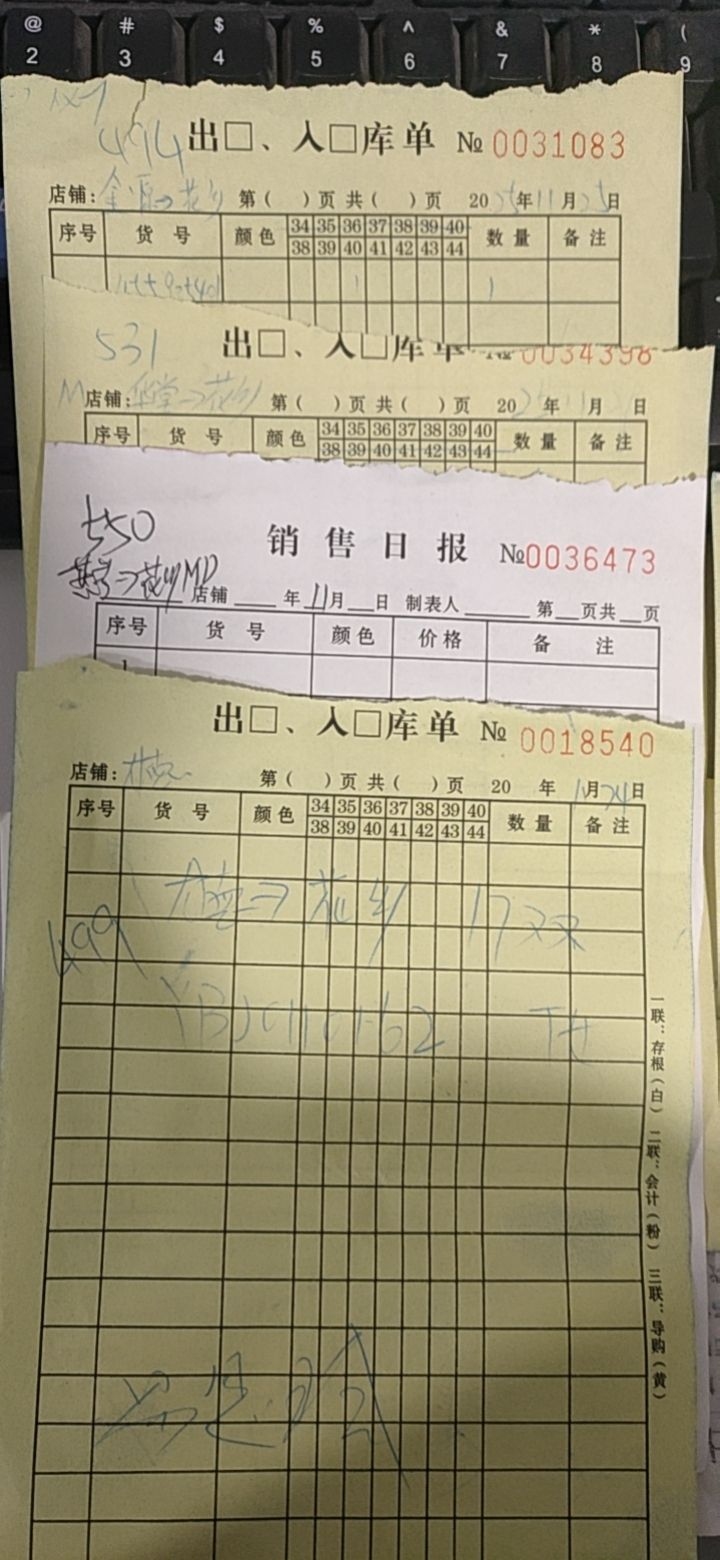 @ # $ % ^ & * (
2 3 4 5 6 7 8 9
494 出□、入□库单 № 0031083
店铺: 第( )页 共( )页 2025年11月25日
序号 货号 颜色 34 35 36 37 38 39 40 数量 备注
38 39 40 41 42 43 44
1 1
531 出□、入□库单 № 0034398
M店铺: →花乡 第( )页 共( )页 20 年 月 日
序号 货号 颜色 34 35 36 37 38 39 40 数量 备注
38 39 40 41 42 43 44
550 销售日报 №0036473
→花乡MD 店铺 年11月 日 制表人 第 页共 页
序号 货号 颜色 价格 备注
1
出□、入□库单 № 0018540
店铺: 第( )页 共( )页 20 年 月24日
序号 货号 颜色 34 35 36 37 38 39 40 数量 备注
38 39 40 41 42 43 44
→花乡 17双
499
一联：存根（白） 二联：会计（粉） 三联：导购（黄）